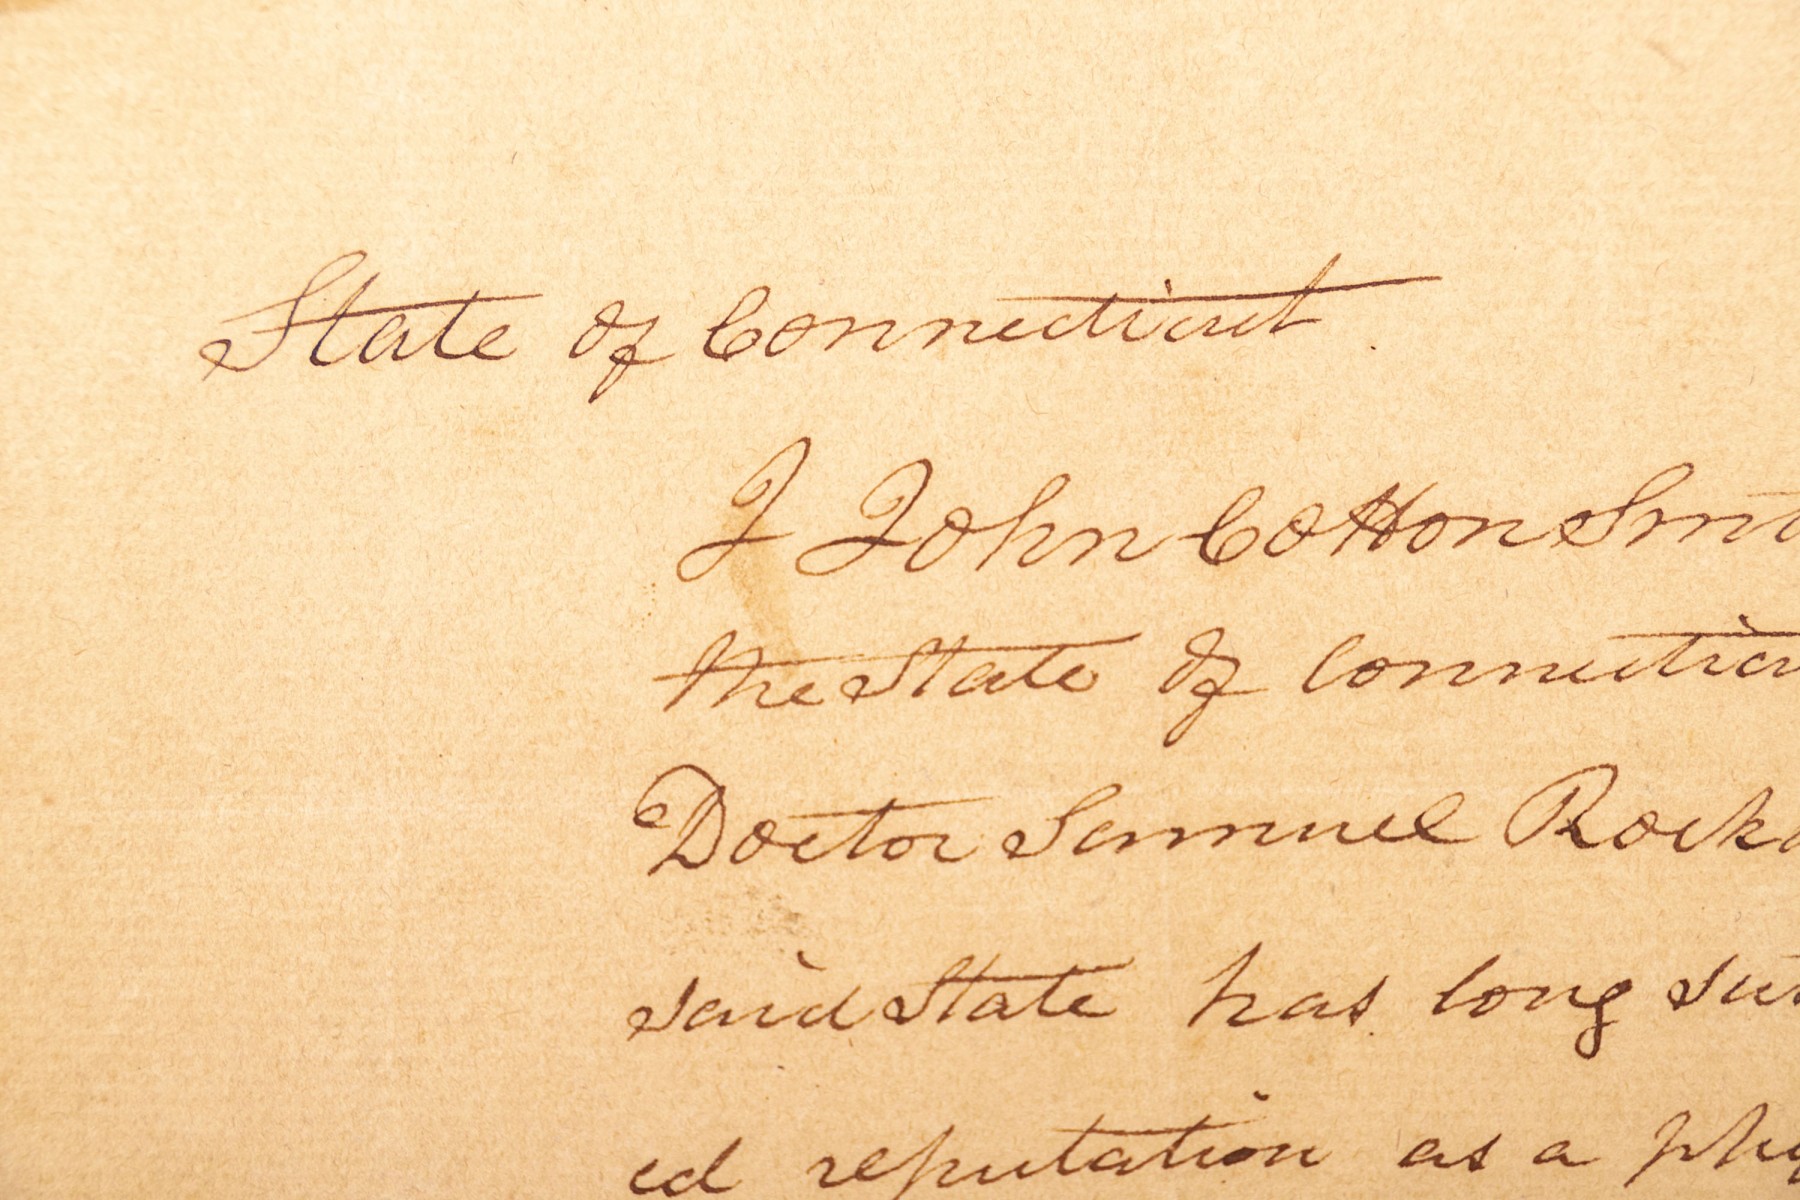 State of Connecticut.
I John Cotton Smit
the State of Connecticu
Doctor Samuel Rock
said State has long sus
ed reputation as a phy